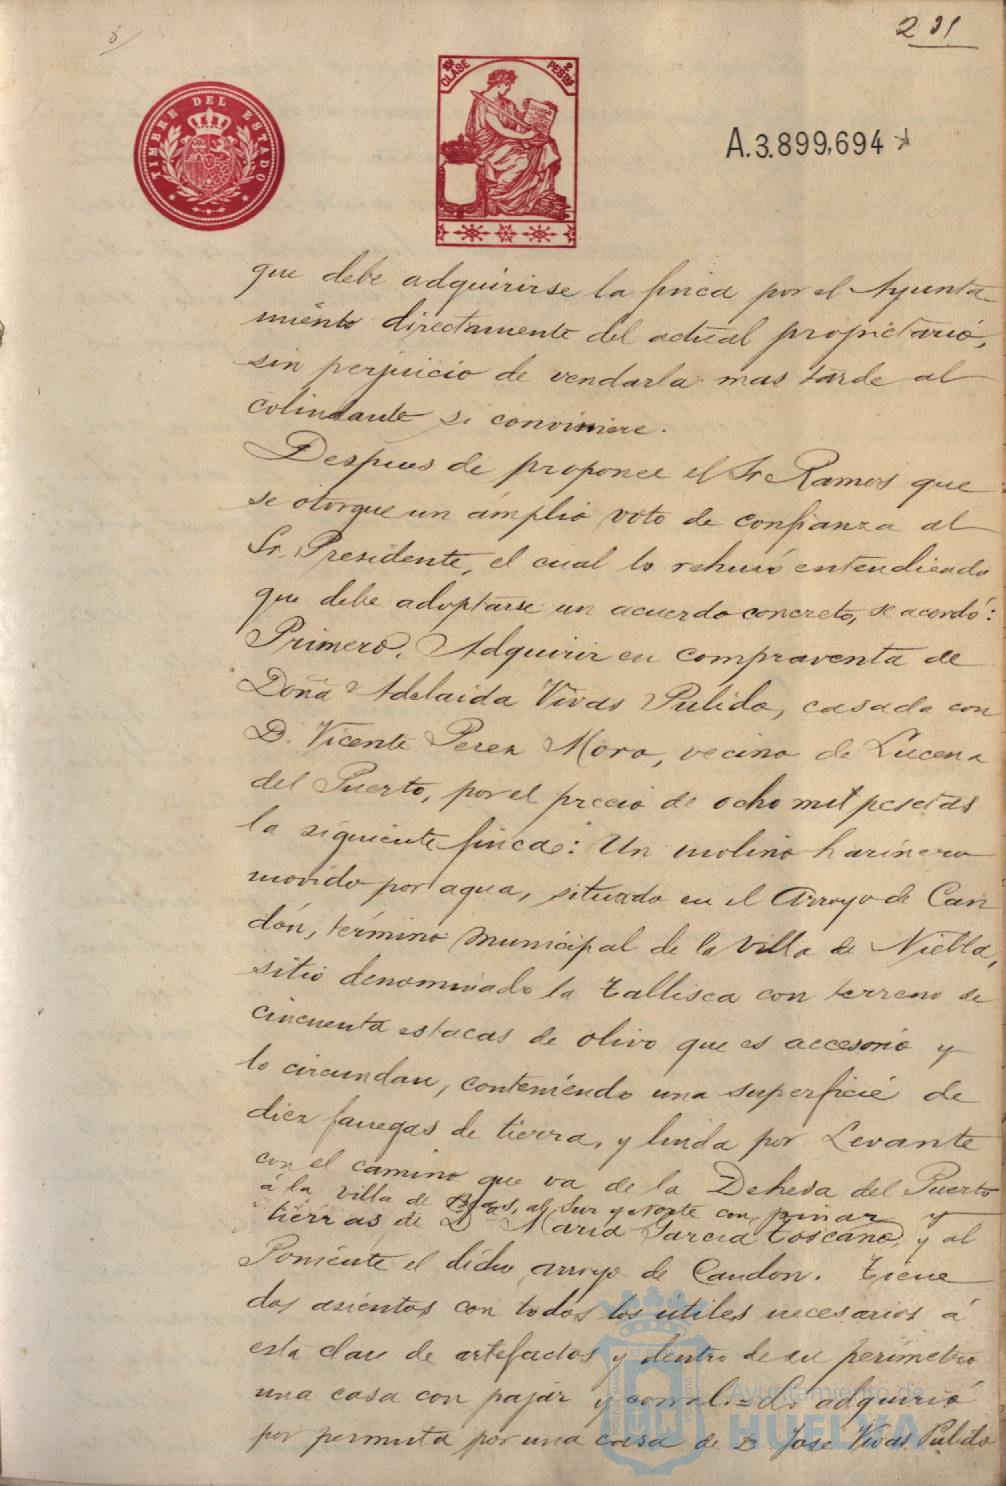 8
2 31
TIMBRE DEL ESTADO
10ª CLASE
2 PESTAS
A.3.899,694
que debe adquirirse la finca por el Ayunta
miento directamente del actual propietario,
sin perjuicio de vendarla mas tarde al
colindante si conviniere.
Despues de proponer el Sr Ramos que
se otorgue un ámplio voto de confianza al
Sr. Presidente, el cual lo rehusó entendiendo
que debe adoptarse un acuerdo concreto, se acordó:
Primero. Adquirir en compraventa de
Doña Adelaida Vivas Pulido, casada con
D. Vicente Perez Moro, vecino de Lucena
del Puerto, por el precio de ocho mil pesetas
la siguiente finca: Un molino harinero
movido por agua, situado en el Arroyo de Can
dón, término municipal de la villa de Niebla,
sitio denominado la Tallisca con terreno de
cincuenta estacas de olivo que es accesorio y
lo circundan, conteniendo una superficie de
diez fanegas de tierra, y linda por Levante
con el camino que va de la Dehesa del Puerto
á la villa de Beas, al Sur y Norte con pinar y
tierras de Dª Maria Garcia Toscano, y al
Poniente el dicho arroyo de Candon. Tiene
dos asientos con todos los utiles necesarios á
esta clase de artefactos y dentro de su perimetro
una casa con pajar y corral = Lo adquirió
por permuta por una casa de D José Vivas Pulido
Ayuntamiento de
HUELVA